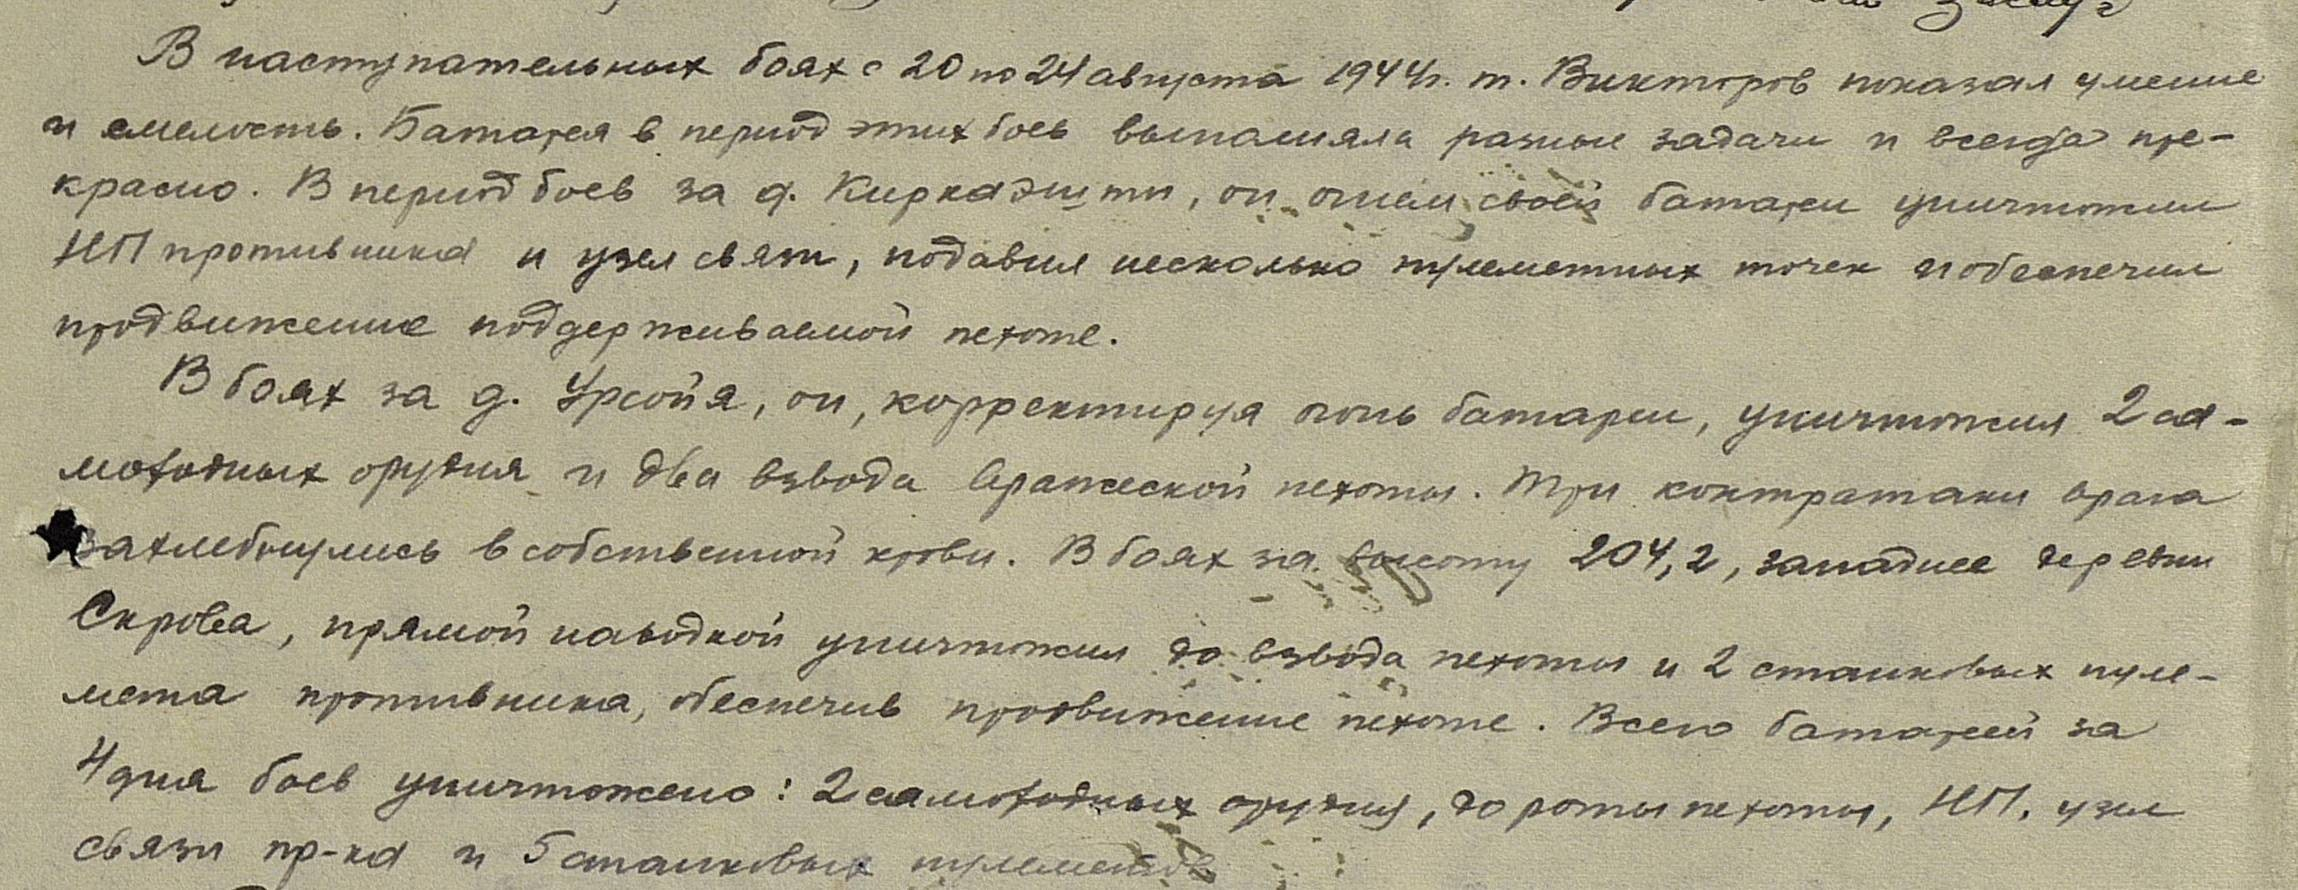 В наступательных боях с 20 по 24 августа 1944г. т. Викторов показал умение
и смелость. Батарея в период этих боев выполняла разные задачи и всегда пре-
красно. В период боев за д. Киркаэшти, он огнем своей батареи уничтожил
НП противника и узел связи, подавил несколько пулеметных точек и обеспечил
продвижение поддерживаемой пехоте.
В боях за д. Урсойя, он, корректируя огонь батареи, уничтожил 2 са-
моходных орудия и два взвода вражеской пехоты. Три контратаки врага
захлебнулись в собственной крови. В боях за высоту 204,2, западнее деревни
Скрова, прямой наводкой уничтожил до взвода пехоты и 2 станковых пуле-
мета противника, обеспечив продвижение пехоте. Всего батареей за
4 дня боев уничтожено: 2 самоходных орудия, до роты пехоты, НП, узел
связи пр-ка и 5 станковых пулеметов